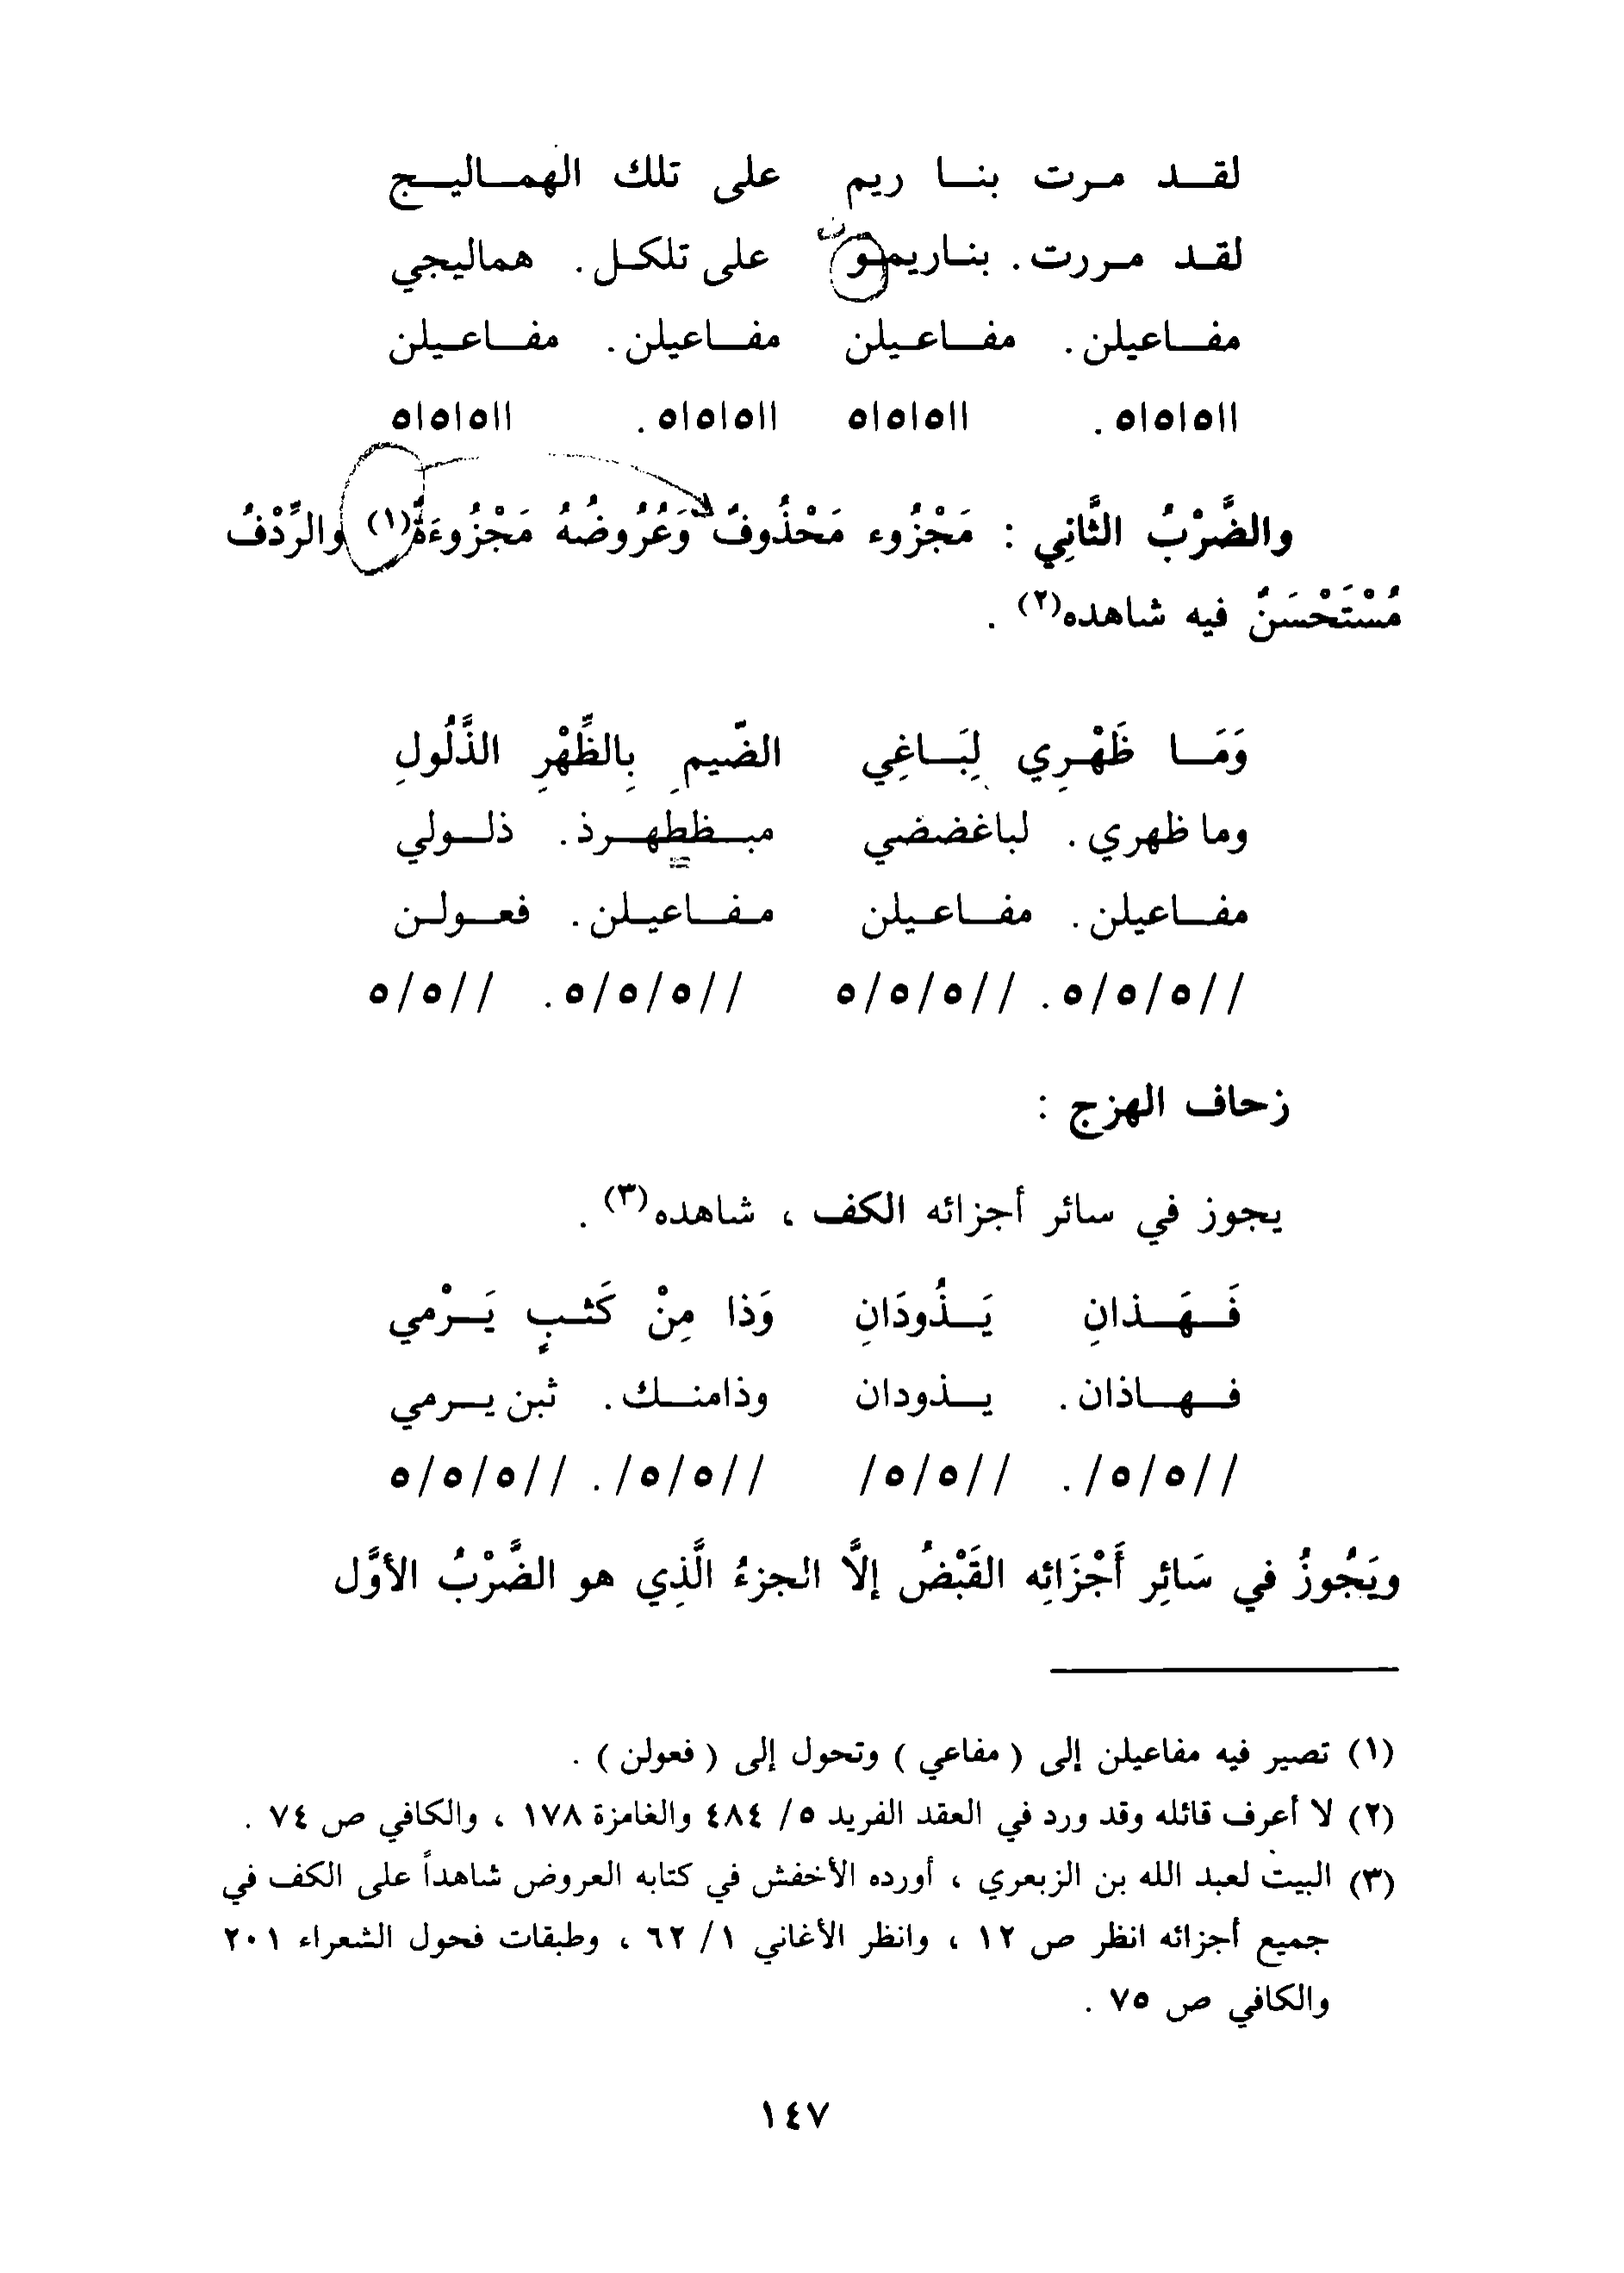 لقد مرت بنا ريم على تلك الهماليج
لقد مررت . بناريمو ن على تلكل . هماليجي
مفاعيلن . مفاعيلن مفاعيلن . مفاعيلن
اا٥ا٥ا٥ . اا٥ا٥ا٥ اا٥ا٥ا٥ . اا٥ا٥ا٥
والضَّرْبُ الثَّانِي : مَجْزُوء مَحْذُوفٌ وَعُرُوضُهُ مَجْزُوءَةٌ (١) والرِّدْفُ
مُسْتَحْسَنٌ فيه شاهده (٢) .
وَمَا ظَهْرِي لِبَاغِي الضَّيمِ بِالظَّهْرِ الذَّلُولِ
وما ظهري . لباغضضي مبظظهرذ . ذلولي
مفاعيلن . مفاعيلن مفاعيلن . فعولن
//٥/٥/٥ . //٥/٥/٥ //٥/٥/٥ . //٥/٥
زحاف الهزج :
يجوز في سائر أجزائه الكف ، شاهده (٣) .
فَهَذانِ يَذُودَانِ وَذا مِنْ كَثبٍ يَرْمي
فهاذان . يذودان وذامنك . ثبن يرمي
//٥/٥/ . //٥/٥/ //٥/٥/ . //٥/٥/٥
ويَجُوزُ في سَائِر أَجْزَائِه القَبْضُ إلاَّ الجزءُ الَّذِي هو الضَّرْبُ الأوَّل
(١) تصير فيه مفاعيلن إلى ( مفاعي ) وتحول إلى ( فعولن ) .
(٢) لا أعرف قائله وقد ورد في العقد الفريد ٥/ ٤٨٤ والغامزة ١٧٨ ، والكافي ص ٧٤ .
(٣) البيت لعبد الله بن الزبعري ، أورده الأخفش في كتابه العروض شاهداً على الكف في
جميع أجزائه انظر ص ١٢ ، وانظر الأغاني ١/ ٦٢ ، وطبقات فحول الشعراء ٢٠١
والكافي ص ٧٥ .
١٤٧